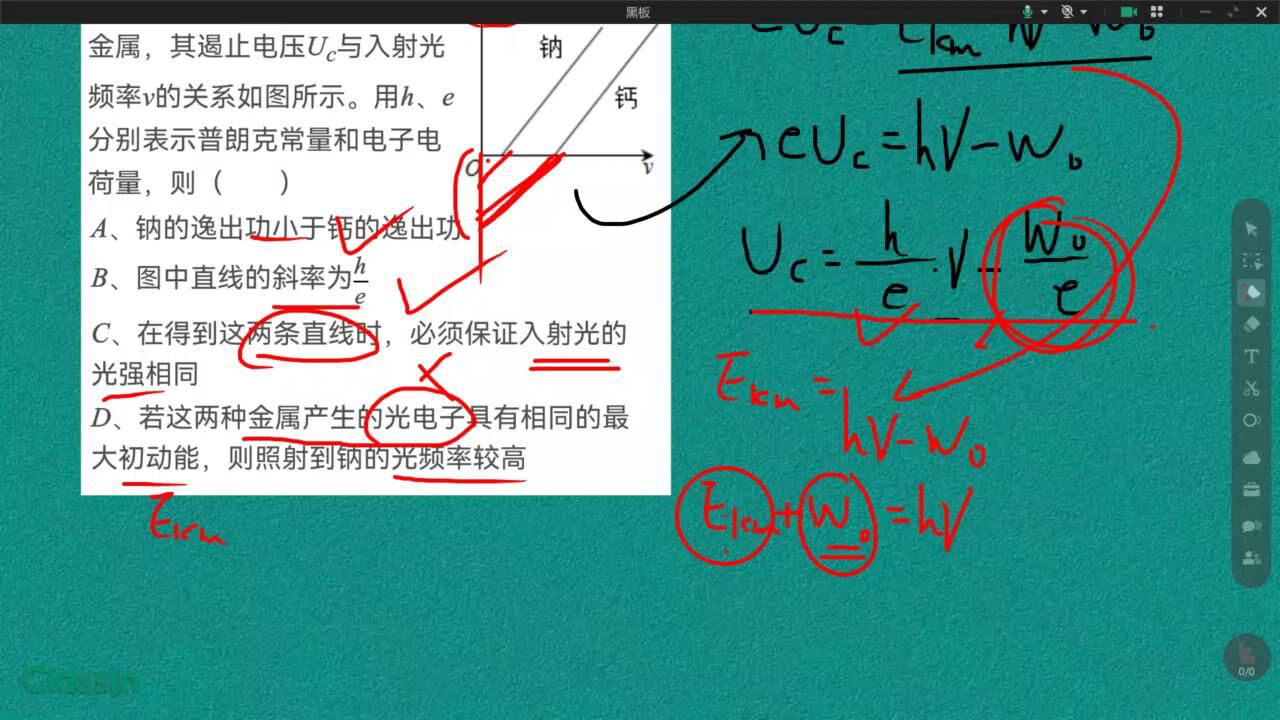 黑板
金属，其遏止电压Uc与入射光
频率ν的关系如图所示。用h、e
分别表示普朗克常量和电子电
荷量，则（　　）
A、钠的逸出功小于钙的逸出功
B、图中直线的斜率为h/e
C、在得到这两条直线时，必须保证入射光的
光强相同
D、若这两种金属产生的光电子具有相同的最
大初动能，则照射到钠的光频率较高
钠
钙
O
ν
Ekm
eUc = hν - W0
Uc = h/e · ν - W0/e
Ekm =
hν - W0
Ekm + W0 = hν
ClassIn
0/0